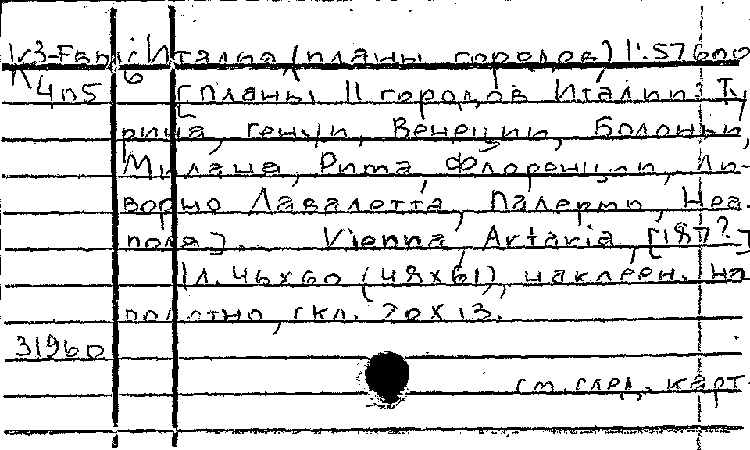 К3-Евр Италия (планы городов) 1:57600
6
К 4п5 [Планы 11 городов Италии: Ту
рина, Генуи, Венеции, Болоньи,
Милана, Рима, Флоренции, Ли-
ворно Лавалетта, Палермо, Неа-
поля]. Vienna, Artaria, [187?]
1л. 46х60 (48х61), наклеен. на
полотно, скл. 20х13.
31960
см. след. карт